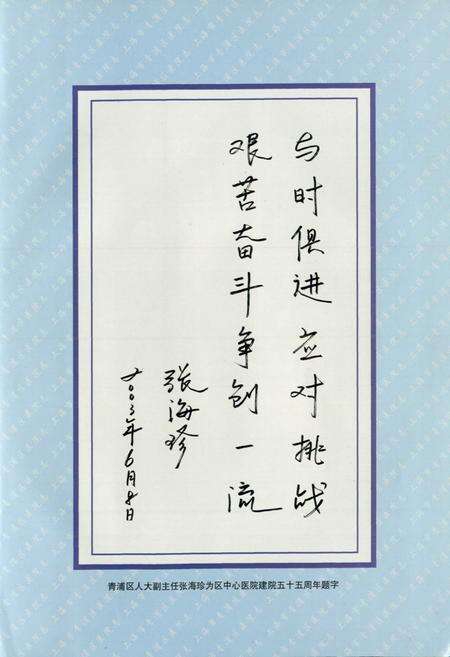 与时俱进应对挑战
艰苦奋斗争创一流
张海珍
二〇〇三年6月8日
青浦区人大副主任张海珍为区中心医院建院五十五周年题字